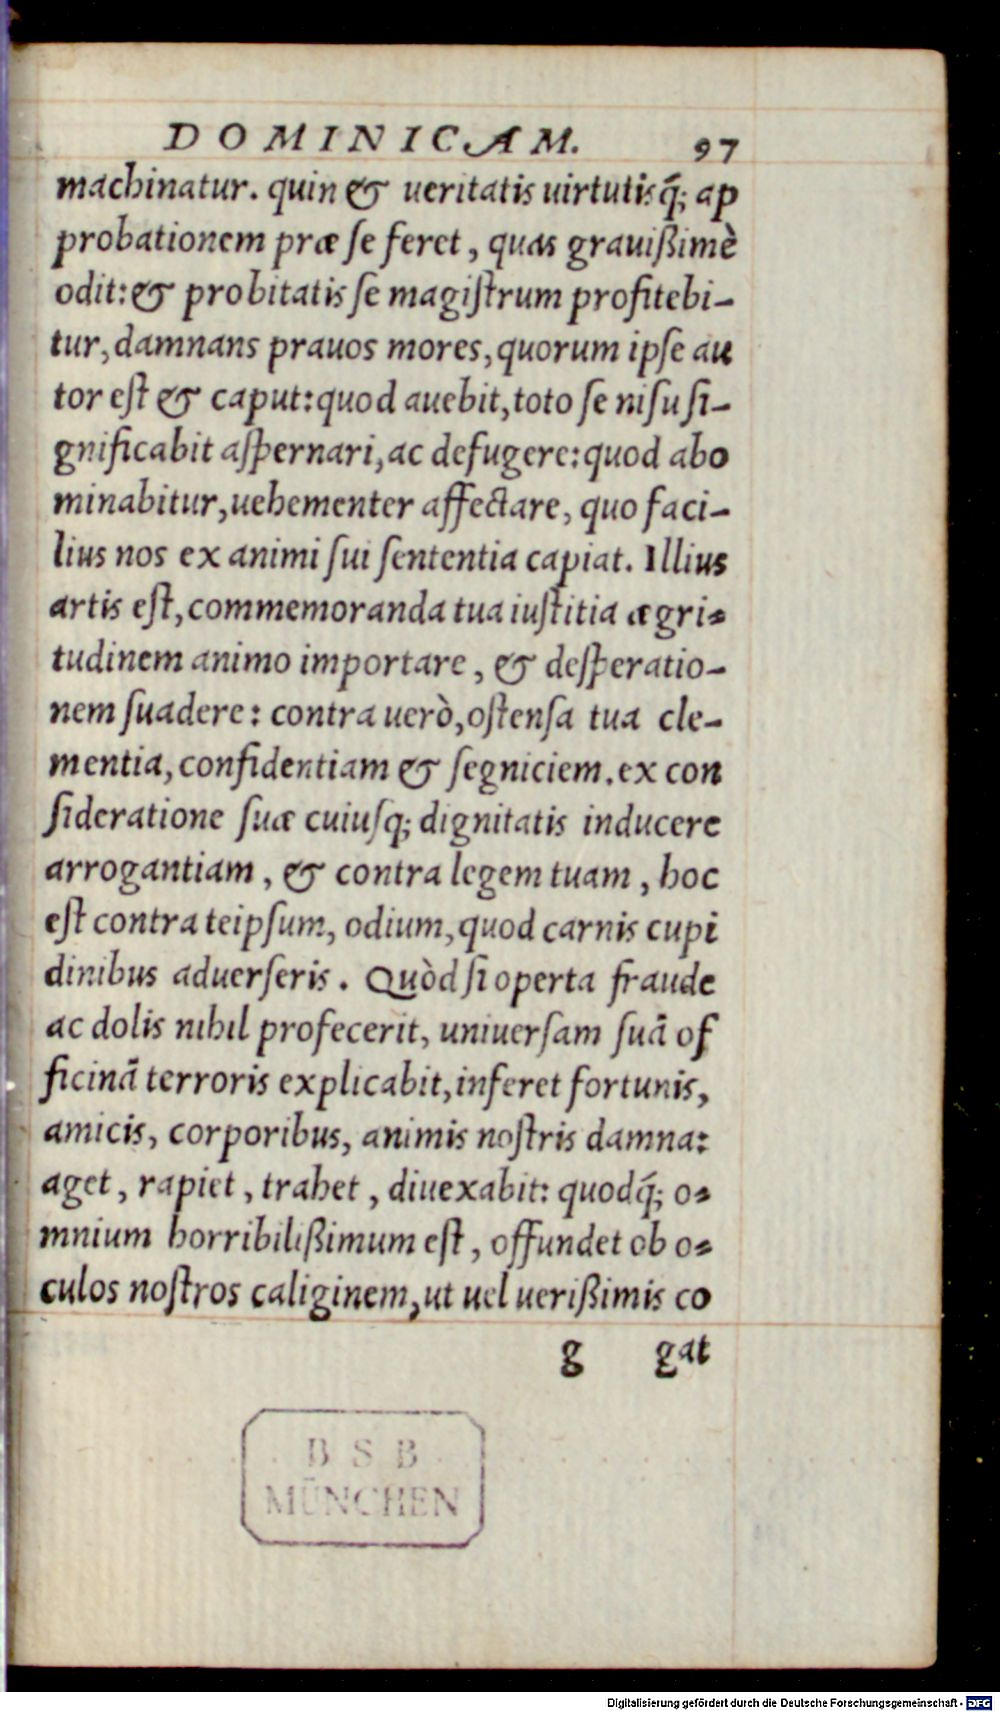 DOMINICAM. 97
machinatur. quin & ueritatis uirtutisq̃; ap
probationem præ se feret, quas grauißimè
odit: & probitatis se magistrum profitebi-
tur, damnans prauos mores, quorum ipse au
tor est & caput: quod auebit, toto se nisu si-
gnificabit aspernari, ac defugere: quod abo
minabitur, uehementer affectare, quo faci-
lius nos ex animi sui sententia capiat. Illius
artis est, commemoranda tua iustitia ægri-
tudinem animo importare, & desperatio-
nem suadere: contra uerò, ostensa tua cle-
mentia, confidentiam & segniciem. ex con
sideratione suæ cuiusq; dignitatis inducere
arrogantiam, & contra legem tuam, hoc
est contra teipsum, odium, quod carnis cupi
dinibus aduerseris. Quòd si operta fraude
ac dolis nihil profecerit, uniuersam suã of
ficinã terroris explicabit, inferet fortunis,
amicis, corporibus, animis nostris damna:
aget, rapiet, trahet, diuexabit: quodq̃; o-
mnium horribilißimum est, offundet ob o-
culos nostros caliginem, ut uel uerißimis co
g gat
BSB
MÜNCHEN
Digitalisierung gefördert durch die Deutsche Forschungsgemeinschaft - DFG